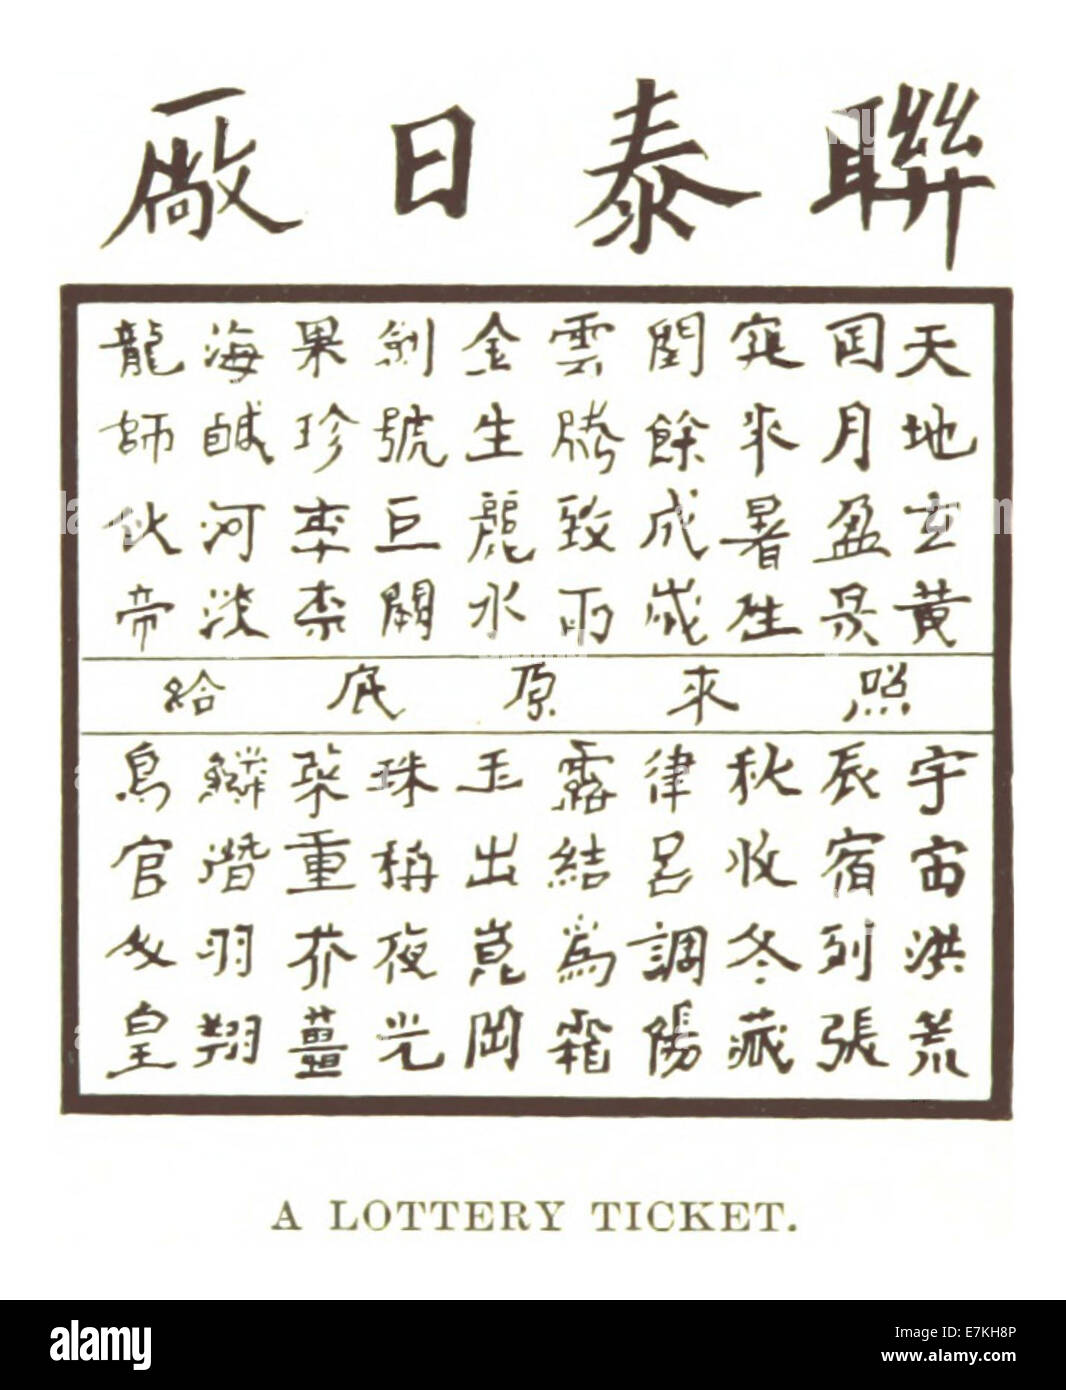 聯泰日廠
天地玄黃
日月盈昃
寒來暑往
閏餘成歲
雲騰致雨
金生麗水
劍號巨闕
果珍李柰
海鹹河淡
龍師火帝
照來原底給
宇宙洪荒
辰宿列張
秋收冬藏
律呂調陽
露結為霜
玉出崑岡
珠稱夜光
菜重芥薑
鱗潛羽翔
鳥官人皇
A LOTTERY TICKET.
alamy
Image ID: E7KH8P
www.alamy.com